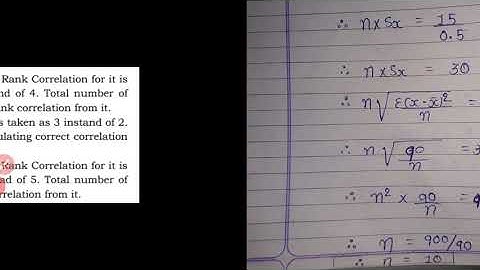 Rank Correlation for it is
nd of 4. Total number of
nk correlation from it.
s taken as 3 instand of 2.
ulating correct correlation
Rank Correlation for it is
ad of 5. Total number of
rrelation from it.
∴ n×Sx = 15/0.5
∴ n×Sx = 30
∴ n√(Σ(x-x̄)²/n) =
∴ n√(90/n) = 3
∴ n² × 90/n = 9
∴ n = 900/90
∴ n = 10